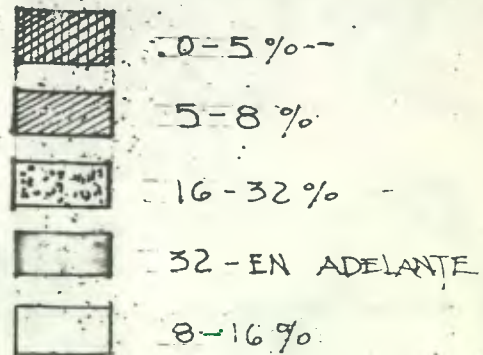 0-5%
5-8 %
16-32%
32-EN ADELANTE
8-16%